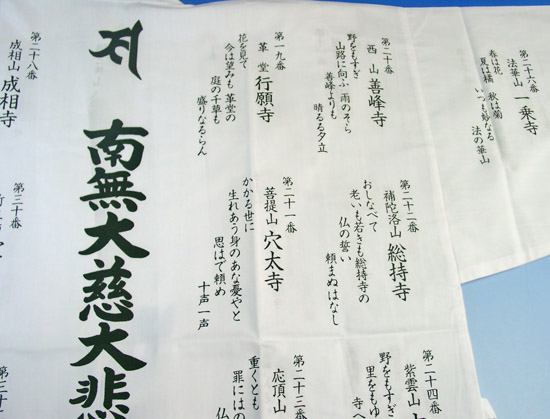 第二十六番
法華山 一乗寺
春は花
夏は橘 秋は菊
いつも妙なる
法の華山
第二十番
西山 善峰寺
野をもすぎ
山路に向ふ 雨のそら
善峰よりも
晴るる夕立
第一九番
革堂 行願寺
花を見て
今は望みも 革堂の
庭の千草も
盛りなるらん
第二十二番
補陀洛山 総持寺
おしなべて
老いも若きも総持寺の
仏の誓い
頼まぬはなし
第二十一番
菩提山 穴太寺
かかる世に
生れあう身のあな憂やと
思はで頼め
十声一声
第二十四番
紫雲山
野をもすぎ
里をもゆ
寺へ
第二十三番
応頂山
重くとも
罪には
仏
南無大慈大悲
第二十八番
成相山 成相寺
第三十番
第三十